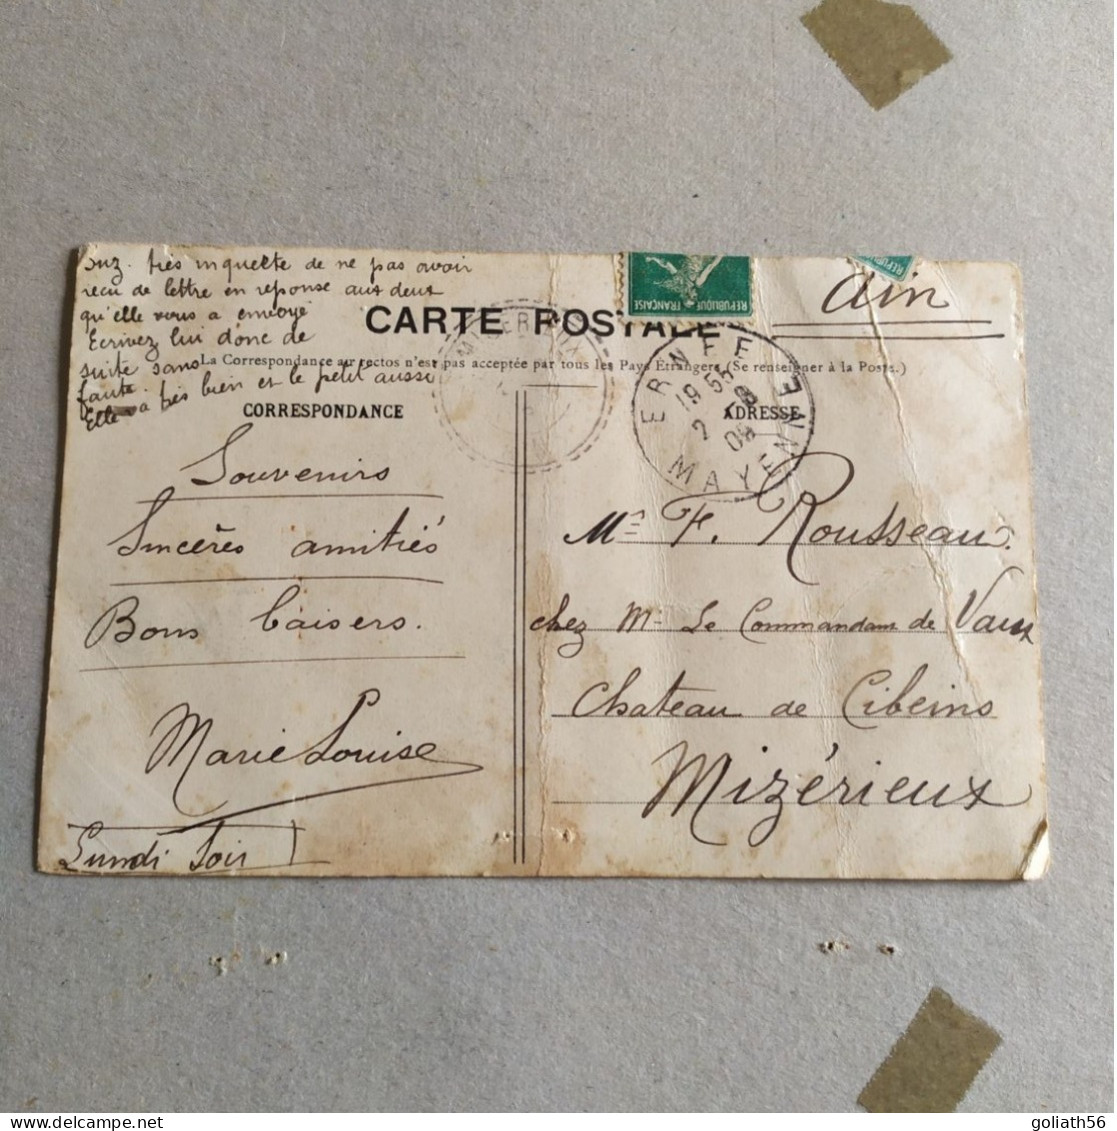 très inquiette de ne pas avoir
recu de lettre en reponse aux deux
qu'elle vous a envoyé
Ecrivez lui donc de
suite sans
faute.
Elle va très bien et le petit aussi
Ain
CARTE POSTALE
La Correspondance au rectos n'est pas acceptée par tous les Pays Étrangers (Se renseigner à la Poste.)
CORRESPONDANCE
ADRESSE
REPUBLIQUE FRANÇAISE
ERNEE
19 55
2
08
MAYENNE
Souvenirs
Sincères amitiés
Bons baisers.
Marie Louise
Lundi Soir
Mr F. Rousseau.
chez Mr Le Commandant de Vaux
Chateau de Cibeins
Mizérieux
goliath56